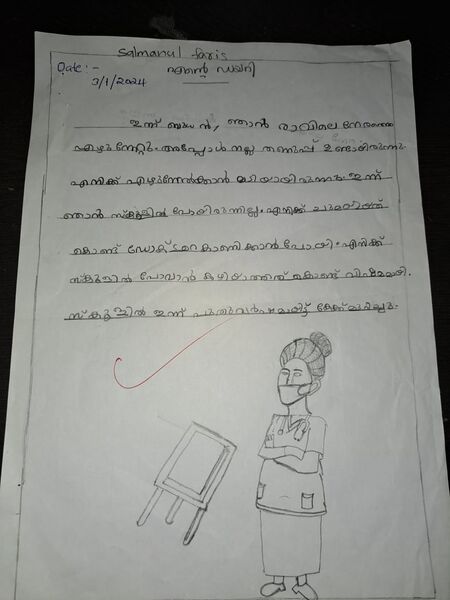 Salmanul faris
Date:- എന്റെ ഡയറി
3/1/2024
ഇന്ന് ബുധൻ, ഞാൻ രാവിലെ നേരത്തെ
എഴുന്നേറ്റു. അപ്പോൾ നല്ല തണുപ്പ് ഉണ്ടായിരുന്നു.
എനിക്ക് എഴുന്നേൽക്കാൻ മടിയായിരുന്നു. ഇന്ന്
ഞാൻ സ്കൂളിൽ പോയിരുന്നില്ല. എനിക്ക് ചുമയായത്
കൊണ്ട് ഡോക്ടറെ കാണിക്കാൻ പോയി. എനിക്ക്
സ്കൂളിൽ പോവാൻ കഴിയാത്തത് കൊണ്ട് വിഷമമായി.
സ്കൂളിൽ ഇന്ന് പുതുവർഷമായിട്ട് കേക്ക് മുറിച്ചു.